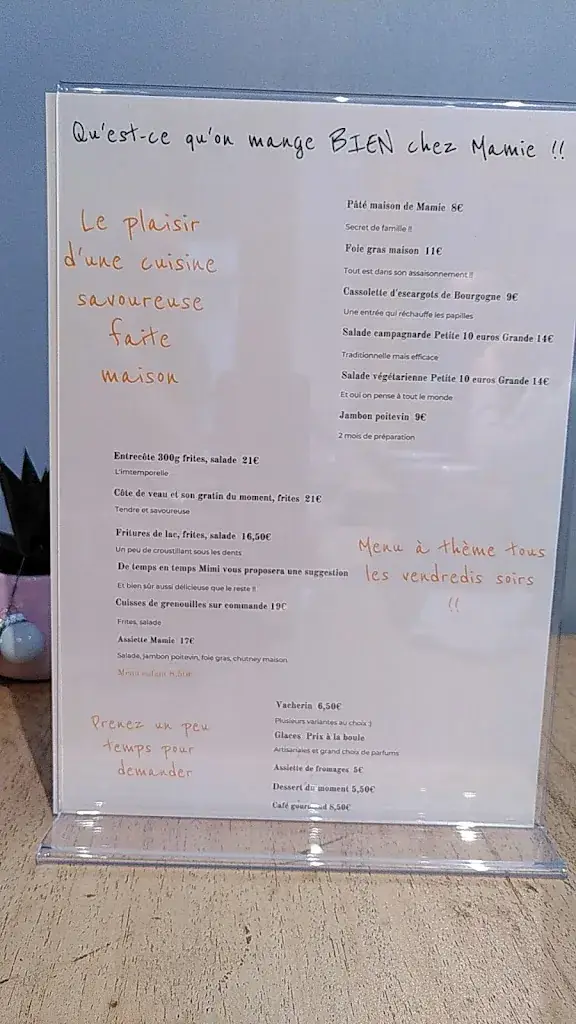 Qu'est-ce qu'on mange BIEN chez Mamie !!
Le plaisir
d'une cuisine
savoureuse
faite
maison
Pâté maison de Mamie 8€
Secret de famille !!
Foie gras maison 11€
Tout est dans son assaisonnement !!
Cassolette d'escargots de Bourgogne 9€
Une entrée qui réchauffe les papilles
Salade campagnarde Petite 10 euros Grande 14€
Traditionnelle mais efficace
Salade végétarienne Petite 10 euros Grande 14€
Et oui on pense à tout le monde
Jambon poitevin 9€
2 mois de préparation
Entrecôte 300g frites, salade 21€
L'imtemporelle
Côte de veau et son gratin du moment, frites 21€
Tendre et savoureuse
Fritures de lac, frites, salade 16,50€
Un peu de croustillant sous les dents
De temps en temps Mimi vous proposera une suggestion
Et bien sûr aussi délicieuse que le reste !!
Cuisses de grenouilles sur commande 19€
Frites, salade
Assiette Mamie 17€
Salade, jambon poitevin, foie gras, chutney maison
Menu enfant 8,50€
Menu à thème tous
les vendredis soirs
!!
Prenez un peu
temps pour
demander
Vacherin 6,50€
Plusieurs variantes au choix :)
Glaces Prix à la boule
Artisanales et grand choix de parfums
Assiette de fromages 5€
Dessert du moment 5,50€
Café gourmand 8,50€